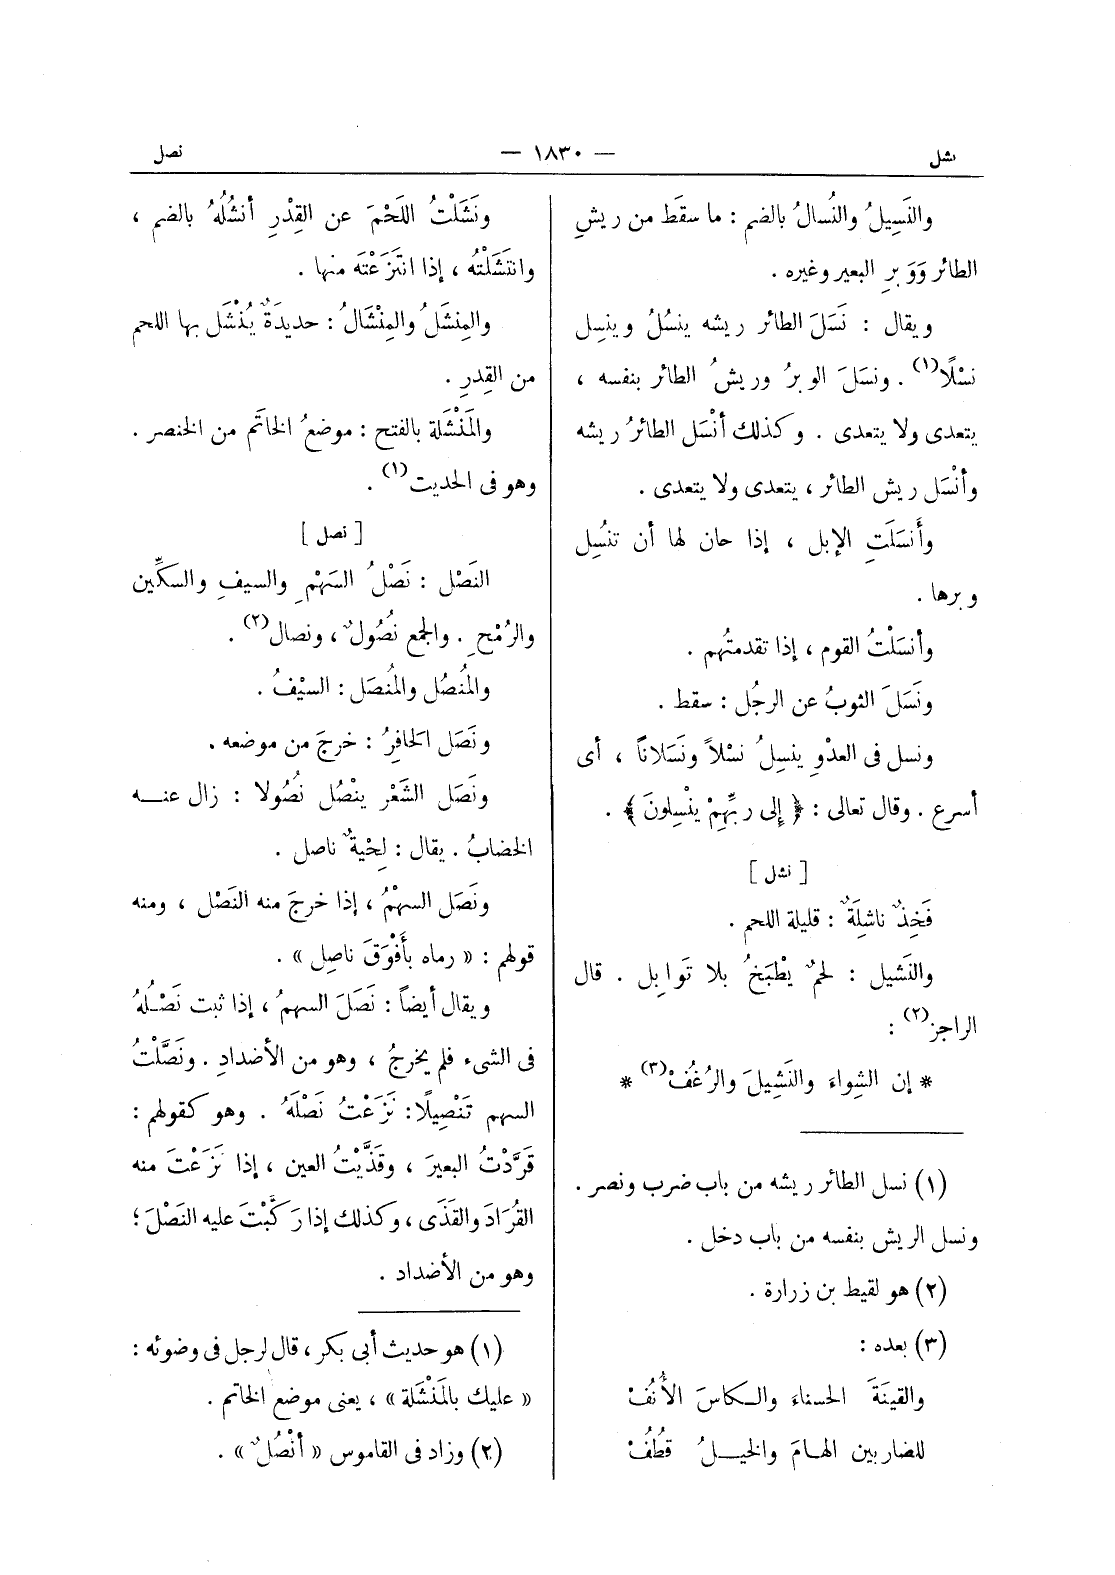 نشل — ١٨٣٠ — نصل
والنَسِيلُ والنُسالُ بالضم : ما سقَط من ريشِ
الطائر وَوَبرِ البعير وغيره .
ويقال : نَسَلَ الطائر ريشه ينسُلُ وينسِل
نسْلًا(١) . ونسَلَ الوبرُ وريشُ الطائر بنفسه ،
يتعدى ولا يتعدى . وكذلك أنْسَل الطائرُ ريشه
وأنْسَل ريش الطائر ، يتعدى ولا يتعدى .
وأَنسَلَتِ الإبل ، إذا حان لها أن تنسُِل
وبرها .
وأنسَلْتُ القوم ، إذا تقدمتُهم .
ونَسَلَ الثوبُ عن الرجُل : سقط .
ونسل فى العدْوِ ينسِلُ نسْلاً ونَسَلاناً ، أى
أسرع . وقال تعالى : ﴿ إِلى ربِّهِمْ ينْسِلونَ ﴾ .
[ نشل ]
فَخِذٌ ناشلِةٌَ : قليلة اللحم .
والنَشيل : لحمٌ يطْبَخُ بلا تَوابِل . قال
الراجز(٢) :
* إن الشِواءَ والنَشِيلَ والرُغُفْ(٣) *
(١) نسل الطائر ريشه من باب ضرب ونصر .
ونسل الريش بنفسه من باب دخل .
(٢) هو لقيط بن زرارة .
(٣) بعده :
والقينَةَ الحسناءَ والكاسَ الأُنُفْ
للضاربين الهامَ والخيلُ قُطُفْ
ونَشَلْتُ اللَحْمَ عن القِدْرِ أنشُلُهُ بالضم ،
وانتَشَلْتُه ، إذا انتَزَعْتَه منها .
والمِنشَلُ والمِنْشَالُ : حديدَةٌ يُنْشَل بها اللحم
من القِدرِ .
والمَنْشَلة بالفتح : موضعُ الخاتَم من الخنصر .
وهو فى الحديث(١) .
[ نصل ]
النَصْل : نَصْلُ السَهْمِ والسيفِ والسكِّين
والرُمْحِ . والجمع نُصُولٌ ، ونصال(٢) .
والمُنصُل والمُنصَل : السيْفُ .
ونَصَل الحافِرُ : خرجَ من موضعه .
ونَصَل الشَعْر ينْصُل نُصُولا : زال عنه
الخضابُ . يقال : لِحْيةٌ ناصل .
ونَصَل السهْمُ ، إذا خرجَ منه النَصْل ، ومنه
قولهم : « رماه بأَفْوَقَ ناصِل » .
ويقال أيضاً : نَصَلَ السهمُ ، إذا ثبت نَصْلُهُ
فى الشىء فلم يخرجُ ، وهو من الأضدادِ . ونَصَّلْتُ
السهم تَنْصِيلًا : نَزَعْتُ نَصْلَهُ . وهو كقولهم :
قرَّدْتُ البعيرَ ، وقذَّيْتُ العين ، إذا نَزَعْتَ منه
القُرَادَ والقَذَى ، وكذلك إذا رَكَّبْتَ عليه النَصْلَ ؛
وهو من الأضداد .
(١) هو حديث أبى بكر ، قال لرجل فى وضوئه :
« عليك بالمَنْشَلة » ، يعنى موضع الخاتم .
(٢) وزاد فى القاموس « أنْصُلٌ » .